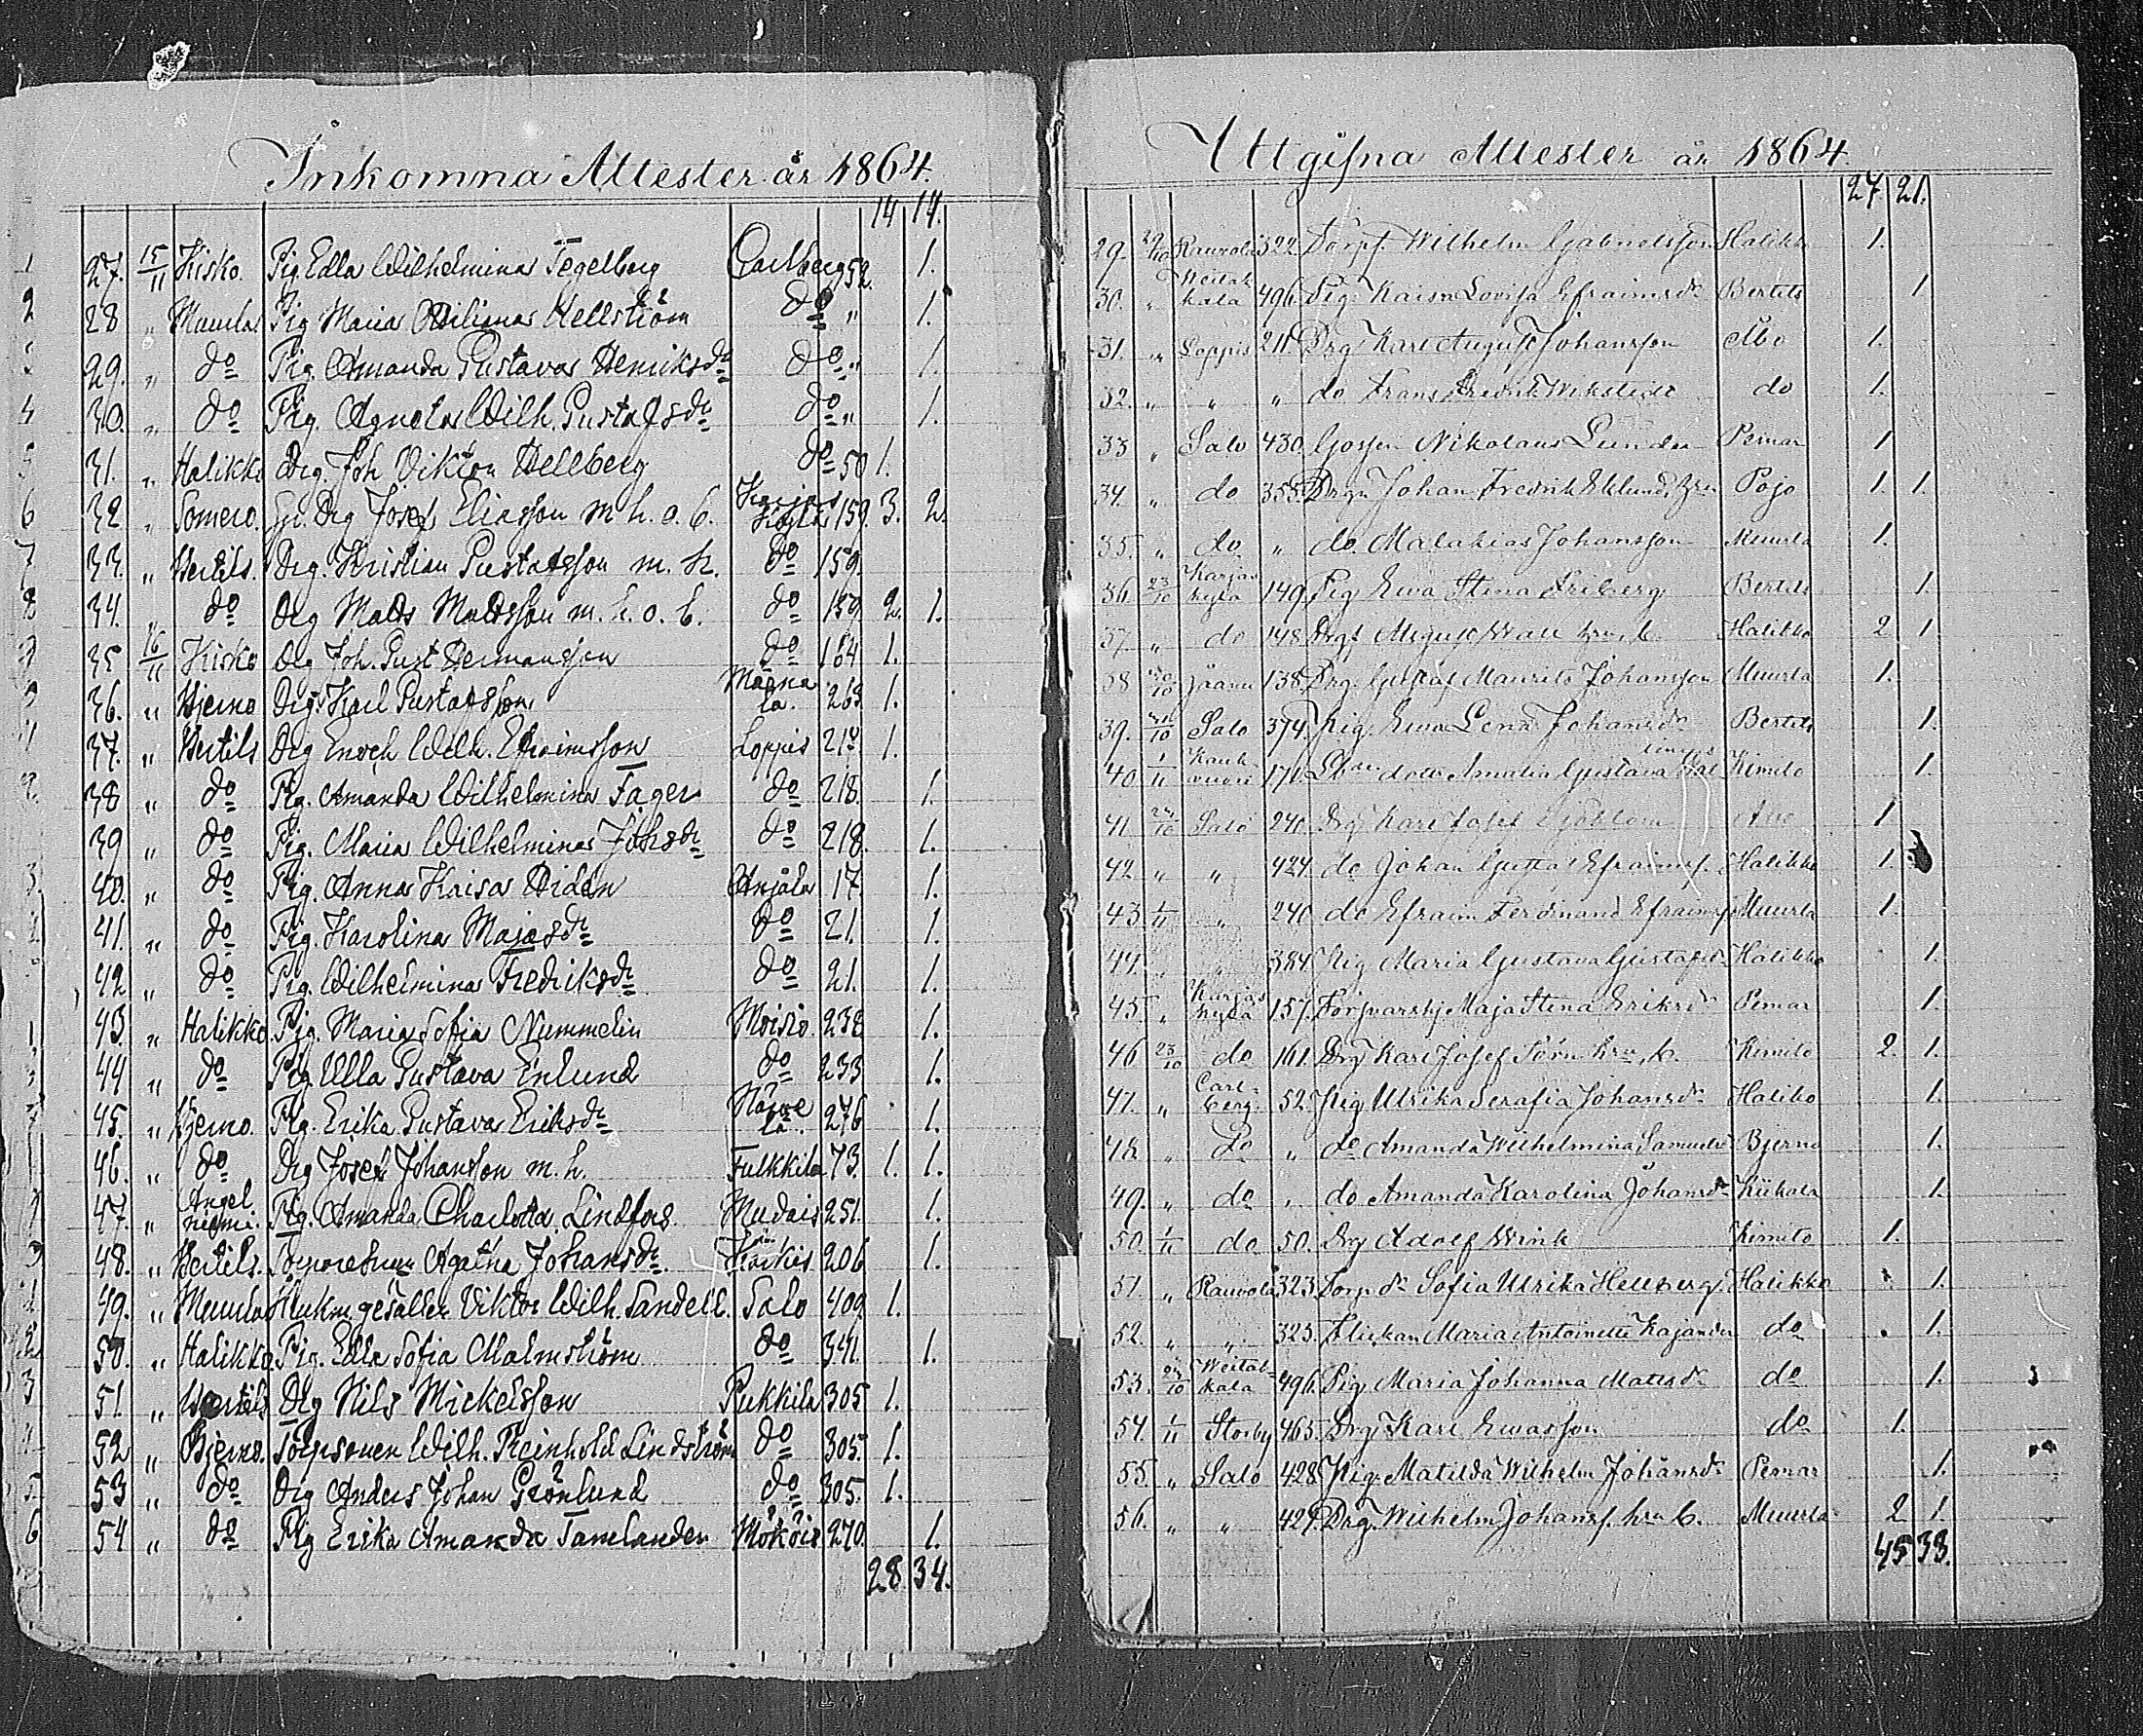 Inkomna Attester år 1864.
14 14.
27. 15/11 Kisko. Pig Edla Wilhelmina Tegelberg Carlberg 52. 1.
28 " Muurla Pig Maria Wilhelmina Hellström do " 1.
29. " do Pig. Amanda Gustava Henriksdr do " 1.
30. " do Pig. Agneta Wilh. Gustafsdr do " 1.
31. " Halikko Drg. Joh Viktor Hellberg do 50 1.
32 " Somero. Drg Josef Eliasson m. h. o. b. Karjas kylä 159. 3. 2.
33. " Bertils. Drg. Kristian Gustafsson m. h. do 159.
34. " do Drg Matts Mattsson m. h. o. b. do 159 2. 1.
35 16/11 Kisko Drg Joh. Gust Hermansson do 164 1.
36. " Bjerno Drg. Karl Gustafsson 263. 1.
37. " Bertils Drg Enoch Wilh. Efraimsson Loppis 218. 1.
38 " do Pig. Amanda Wilhelmina Fager do 218. 1.
39 " do Pig. Maria Wilhelmina Johsdr do 218. 1.
40. " do Pig. Anna Kaisa Hidén Anjala 17. 1.
41. " do Pig. Karolina Majasdr do 21. 1.
42 " do Pig. Wilhelmina Fredriksdr do 21. 1.
43. " Halikko. Pig. Maria Sofia Nummelin Moisio. 238 1.
44 " do Pig. Ulla Gustava Enlund do 233 1.
45. " Bjerno. Pig. Erika Gustava Eriksdr 276 1.
46. " do Drg Josef Johansson m. h. Fulkkila 73. 1. 1.
47. " Angel niemi. Pig. Amanda Charlotta Lindfors. Mudais 251. 1.
48. " Bertils. Agatha Johansdr. Kärkis 206 1.
49. " Muurla gesällen Viktor Wilh. Sandell. Salo 409. 1.
50. " Halikko. Pig. Edla Sofia Malmström do 341. 1.
51. " Bertils Drg Nils Mickelsson Pukkila 305 1.
52 " Bjerno. Torpsonen Wilh. Reinhold Lindström do 305. 1.
53 " do Drg Anders Johan Grönlund do 305. 1.
54 " do Pig Erika Amanda Tamlander Mököis 270. 1.
28. 34.
Uttgifna Attester år 1864.
27. 21.
29. 29/10 Rauvola 322. Torpf. Wilhelm Gabrielsson Halikko 1.
30. " Veitak kala 496. Pig. Kaisa Lovisa Efraimsdr Bertils 1
31. " Loppis 211. Drg. Karl August Johansson Åbo 1.
32. " " " do Frans Fredrik Wikstedt do 1.
33 " Salo 430. Gossen Nikolaus Pemar 1
34. " do 355. Drgn Johan Fredrik Eklund, hru Pojo 1. 1.
35. " do " do Malakias Johansson Muurla 1.
36. 23/10 Karjas kylä 149. Pig Ewa Stina Friberg Bertils 1.
37. " do 148. Drg. August hru, b. Halikko 2. 1
38 138. Drg. Gustaf Maurits Johansson Muurla 1.
39. Salo 374. Pig. Ewa Lena Johansdr Bertils 1.
40. 1/11 170. Amalia Gustava Kimito 1.
41 Salo 240. Drg Karl Josef Sjöblom 1
42. " " 424. do Johan Gustaf Efraimsf. Halikko 1.
43. 1/11 " 240 do Efraim Ferdinand Efraimsson Muurla 1.
44. " " 384. Pig Maria Gustava Gustafsdr Halikko 1.
45. " Karjas kylä 157. Maja Stina Eriksdr Pemar 1.
46 23/10 do 161. Drg Karl Josef Törn hru, b. Kimito 2. 1.
47. " Carl- berg. 52. Pig Ulrika Serafia Johansdr Haliko 1.
48. " do " do Amanda Wilhelmina Samuelsdr Bjerno 1.
49. " do " do Amanda Karolina Johansdr Kiikala 1.
50. 1/11 do 50. Drg Adolf Wink Kimito 1.
51. " Rauvola 323. Torp. dr Sofia Ulrika Hellberg Halikko 1.
52. " " 323. Flickan Maria Antoinette Kajander do 1.
53. Weitak- kala 496. Pig Maria Johanna Mattsdr do 1.
54. 1/11 Storby 465. Drg Karl Ewasson do 1.
55. " Salo 428. Pig. Matilda Wilhelm. Johansdr Pemar 1.
56. " " 429. Drg. Wilhelm Johansf. hru b. Muurla 2. 1.
45 38.